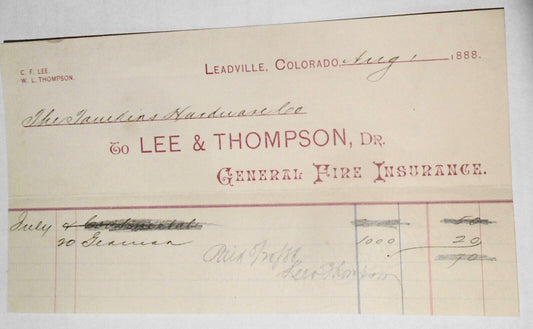 C. F. LEE.
W. L. THOMPSON.
LEADVILLE, COLORADO, Aug 1 1888.
The Tomkins Hardware Co
To LEE & THOMPSON, DR.
GENERAL FIRE INSURANCE.
July & Continental 50
20 German 1000 20
Paid 8/20/88 70
Lee & Thompson